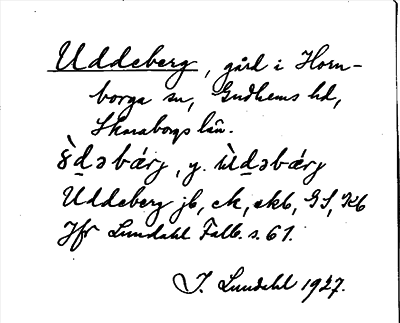 Uddeberg, gård i Horn-
borga sn, Gudhems hd,
Skaraborgs län.
ɞ̀d̲əbárj, y. ùd̲əbárj
Uddeberg jb, ek, skb, GS, Kb
Jfr Lundahl Falb. s. 61.
I. Lundahl 1927.